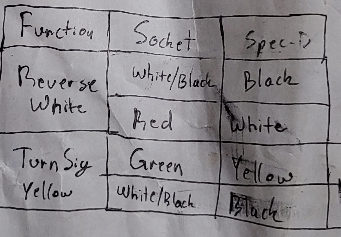 Function Socket Spec-D
Reverse White White/Black Black
Red White
Turn Sig Yellow Green Yellow
White/Black Black